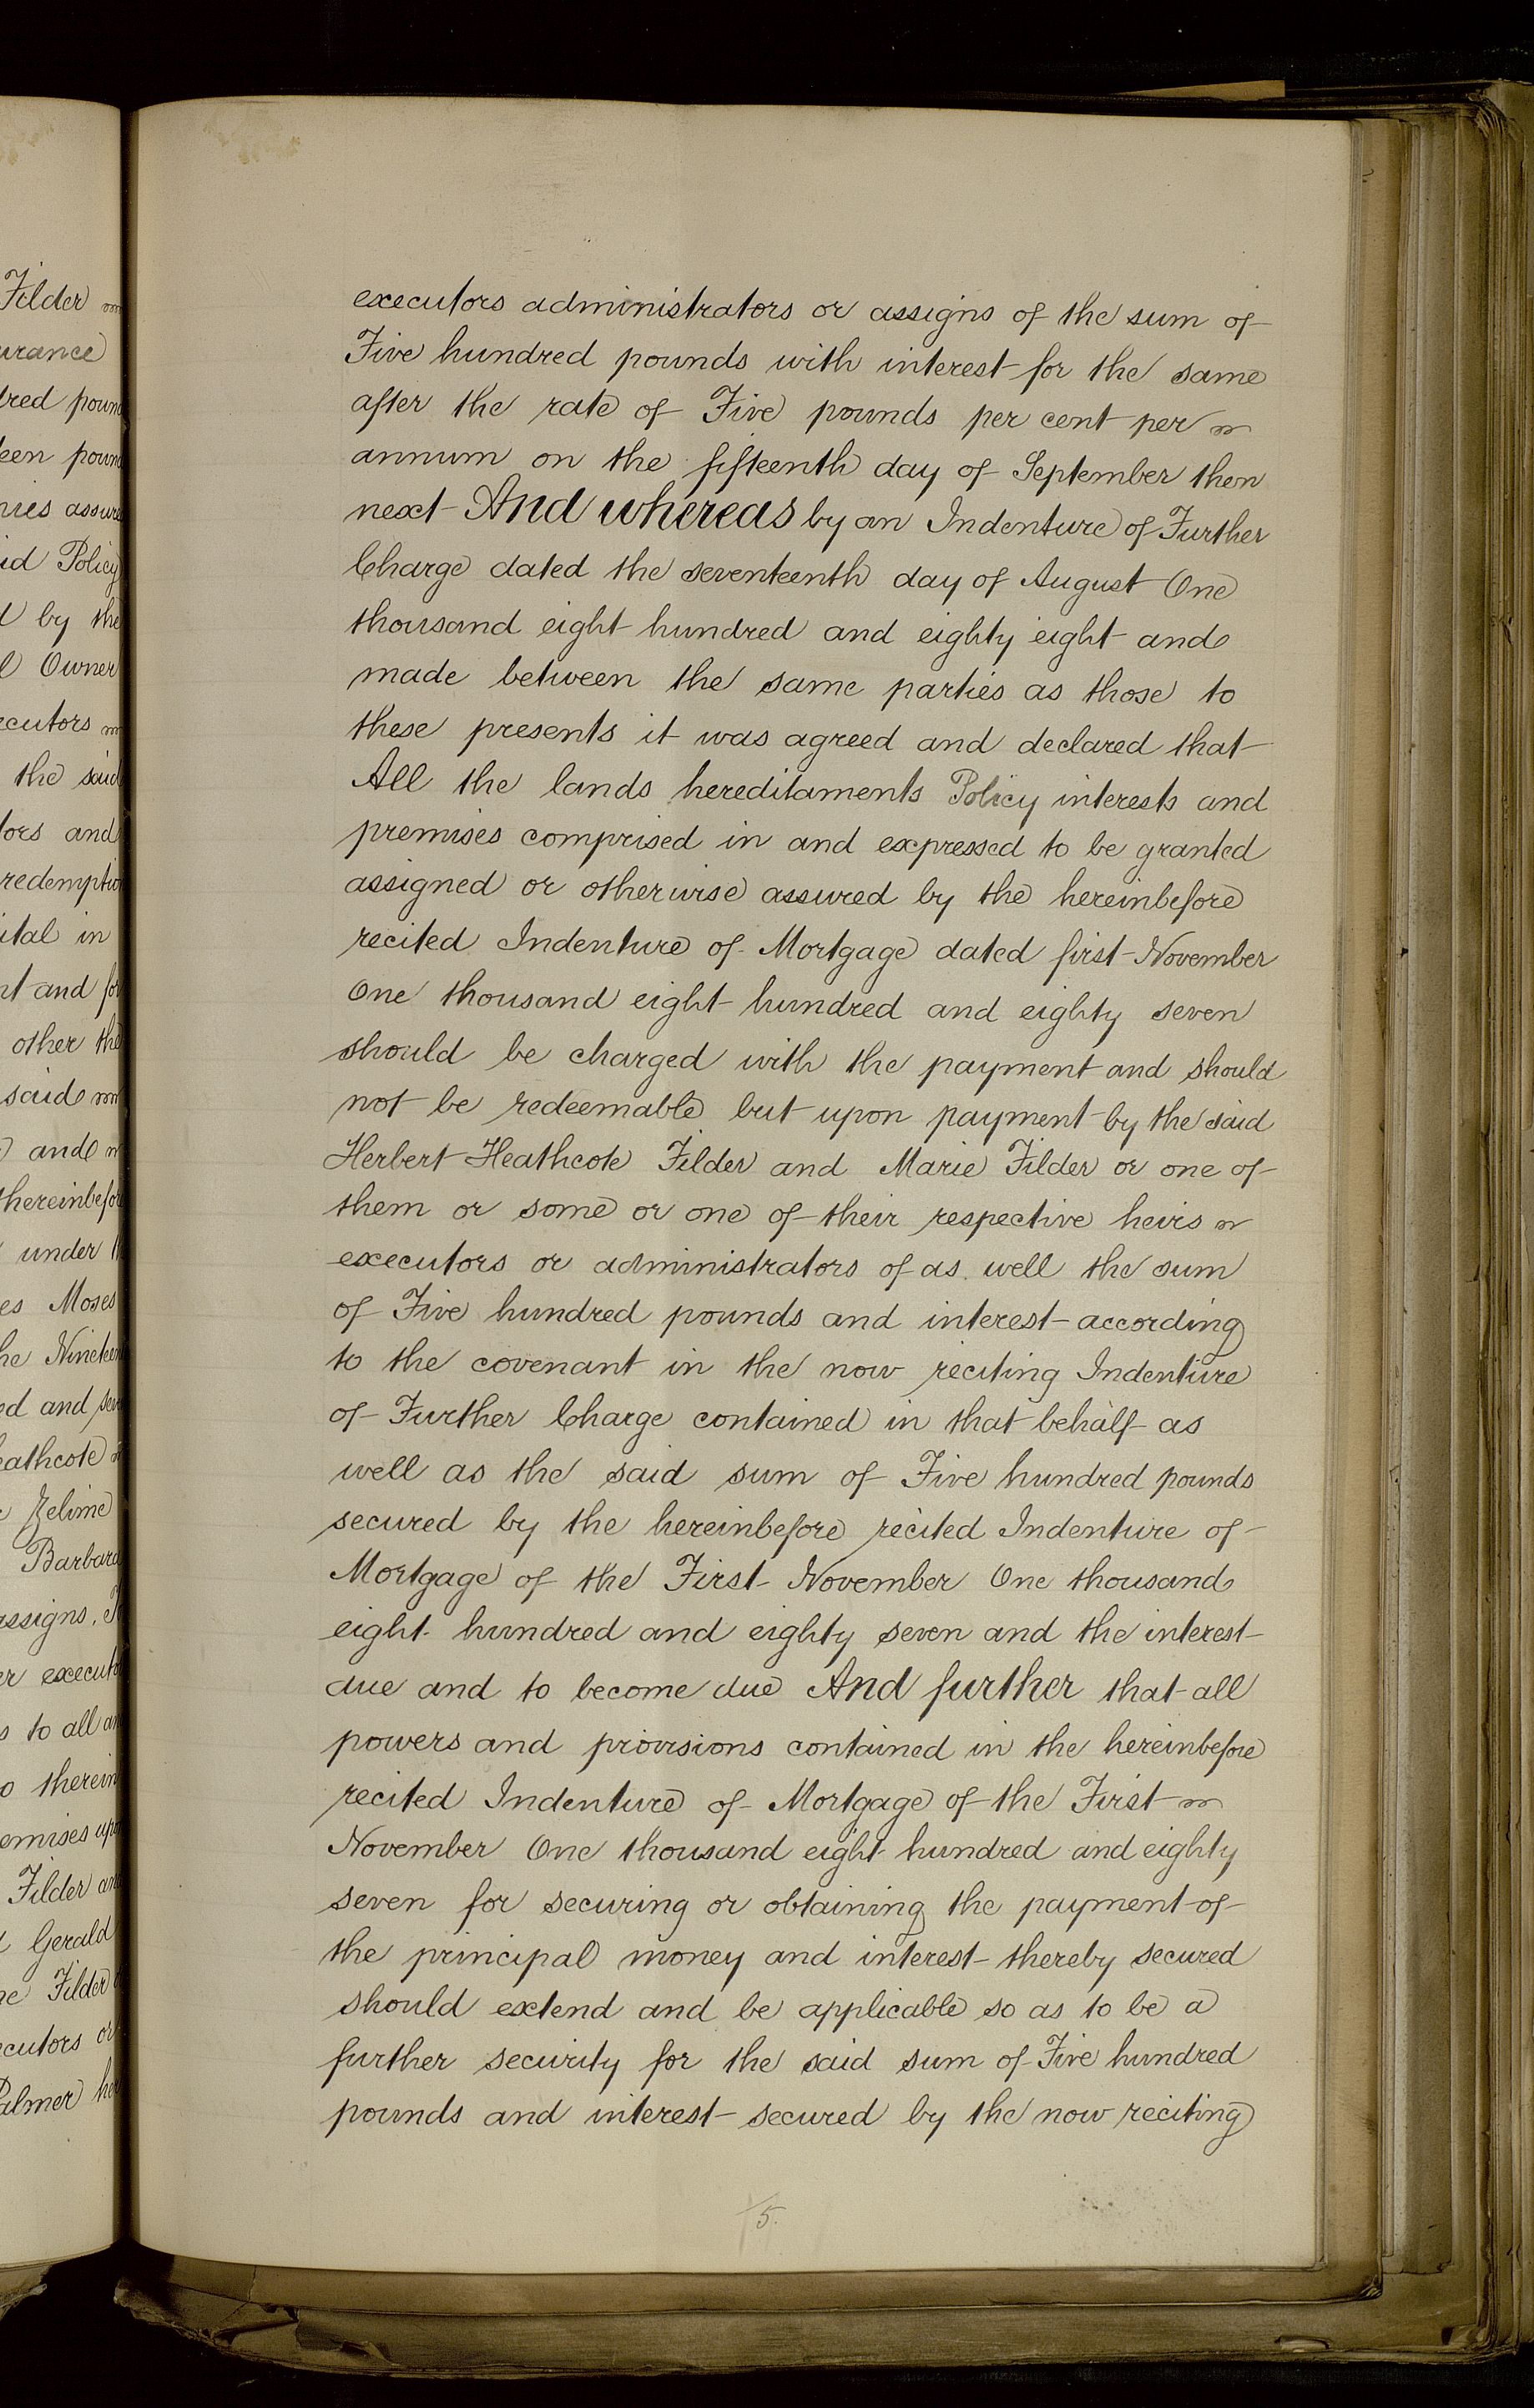 Filder
urance
dred poun
teen poun
nies assure
id Policy
d by the
l Owner
ecutors
the said
tors and
redemptio
ital in
nt and for
other the
said
and
thereinbefor
under
es Moses
he Nineteen
ed and sev
eathcote
Zelime
Barbara
assigns
er executo
s to all an
o therein
emises upo
Filder and
Gerald
ne Filder
ecutors or
Palmer her
executors administrators or assigns of the sum of
Five hundred pounds with interest for the same
after the rate of Five pounds per cent per
annum on the fifteenth day of September then
next And whereas by an Indenture of Further
Charge dated the seventeenth day of August One
thousand eight hundred and eighty eight and
made between the same parties as those to
these presents it was agreed and declared that
All the lands hereditaments Policy interests and
premises comprised in and expressed to be granted
assigned or otherwise assured by the hereinbefore
recited Indenture of Mortgage dated first November
One thousand eight hundred and eighty seven
should be charged with the payment and should
not be redeemable but upon payment by the said
Herbert Heathcote Filder and Marie Filder or one of
them or some or one of their respective heirs
executors or administrators of as well the sum
of Five hundred pounds and interest according
to the covenant in the now reciting Indenture
of Further Charge contained in that behalf as
well as the said sum of Five hundred pounds
secured by the hereinbefore recited Indenture of
Mortgage of the First November One thousand
eight hundred and eighty seven and the interest
due and to become due And further that all
powers and provisions contained in the hereinbefore
recited Indenture of Mortgage of the First
November One thousand eight hundred and eighty
seven for securing or obtaining the payment of
the principal money and interest thereby secured
should extend and be applicable so as to be a
further security for the said sum of Five hundred
pounds and interest secured by the now reciting
5.